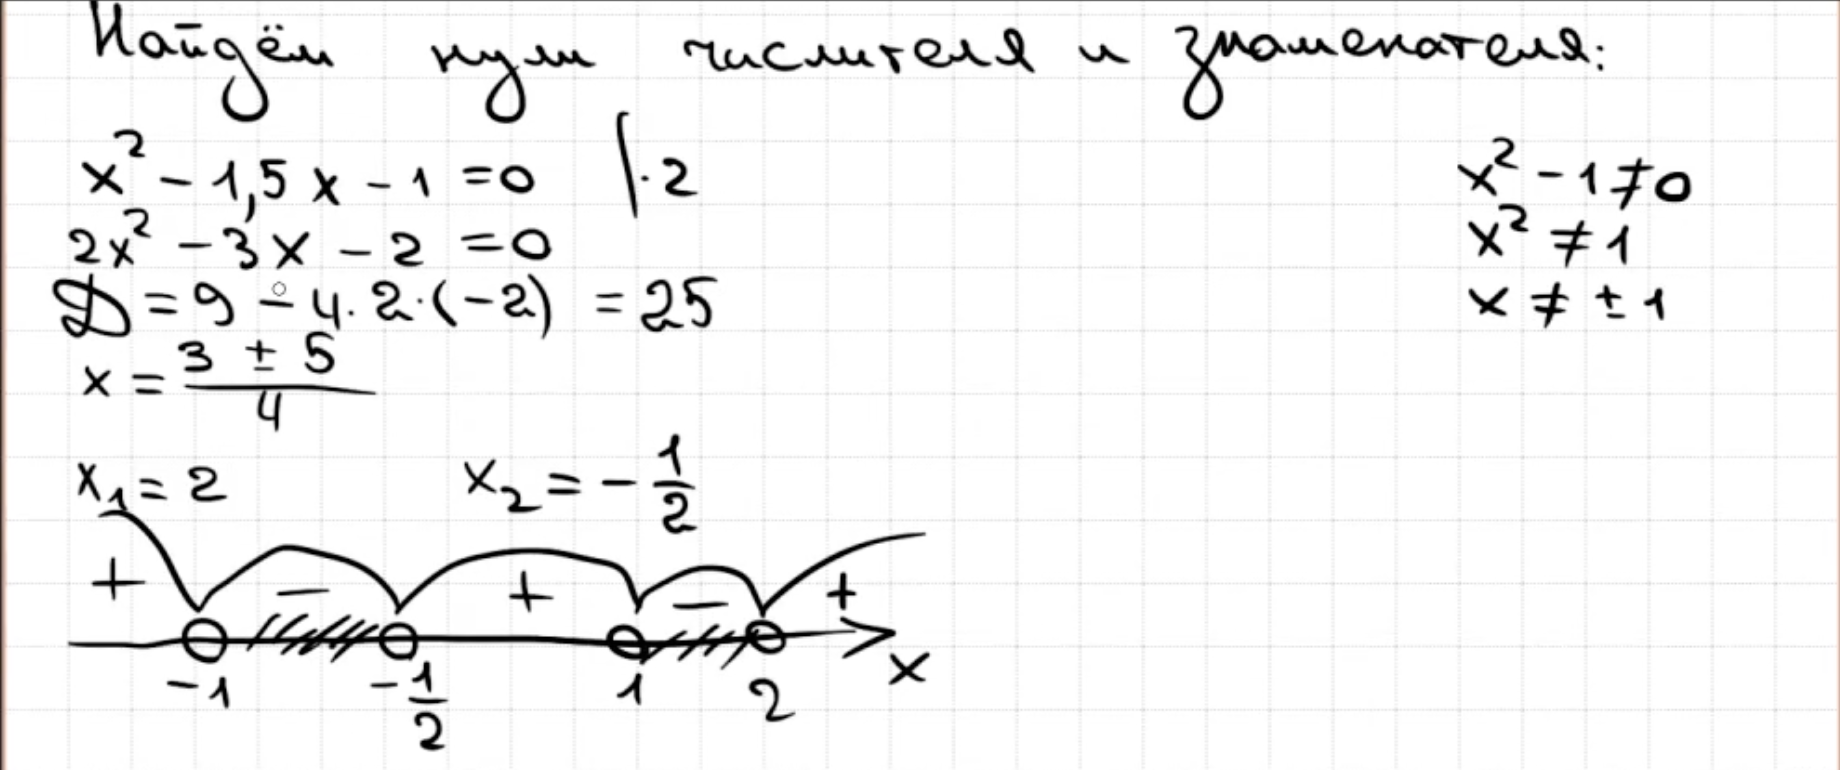 Найдём нули числителя и знаменателя:
x² - 1,5x - 1 = 0 | · 2
2x² - 3x - 2 = 0
D = 9 - 4 · 2 · (-2) = 25
x = (3 ± 5)/4
x₁ = 2 x₂ = -1/2
x² - 1 ≠ 0
x² ≠ 1
x ≠ ± 1
+ - + - +
-1 -1/2 1 2 x